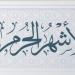 الأشهر الحرم